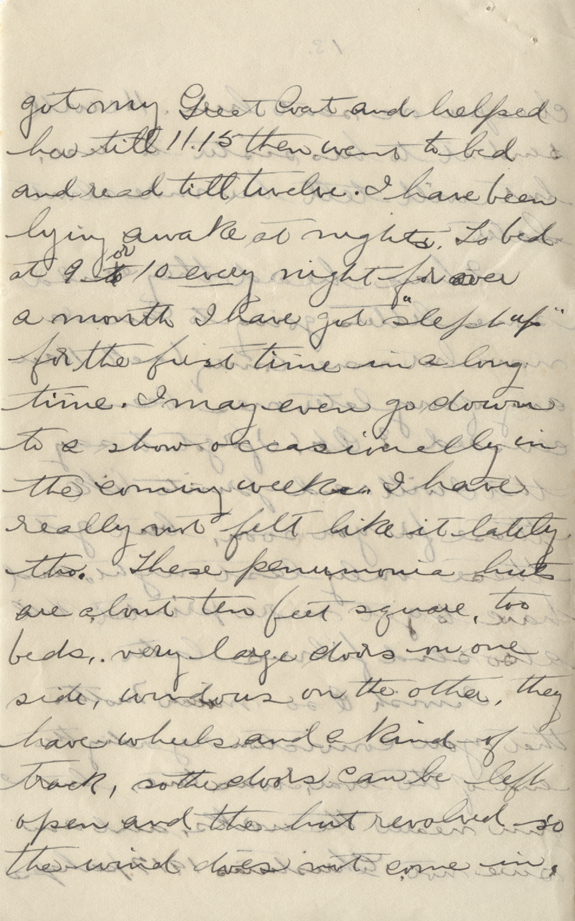 got my Great Coat and helped
her till 11.15 then went to bed
and read till twelve. I have been
lying awake at nights. To bed
at 9. or 10 every night for over
a month I have got "slept up"
for the first time in a long
time. I may even go down
to a show occasionally in
the coming weeks. I have
really not felt like it lately
tho. These penumonia huts
are about ten feet square, too
beds, very large doors on one
side, windows on the other, they
have wheels and a kind of
track, so the doors can be left
open and the hut revolved so
the wind does not come in.